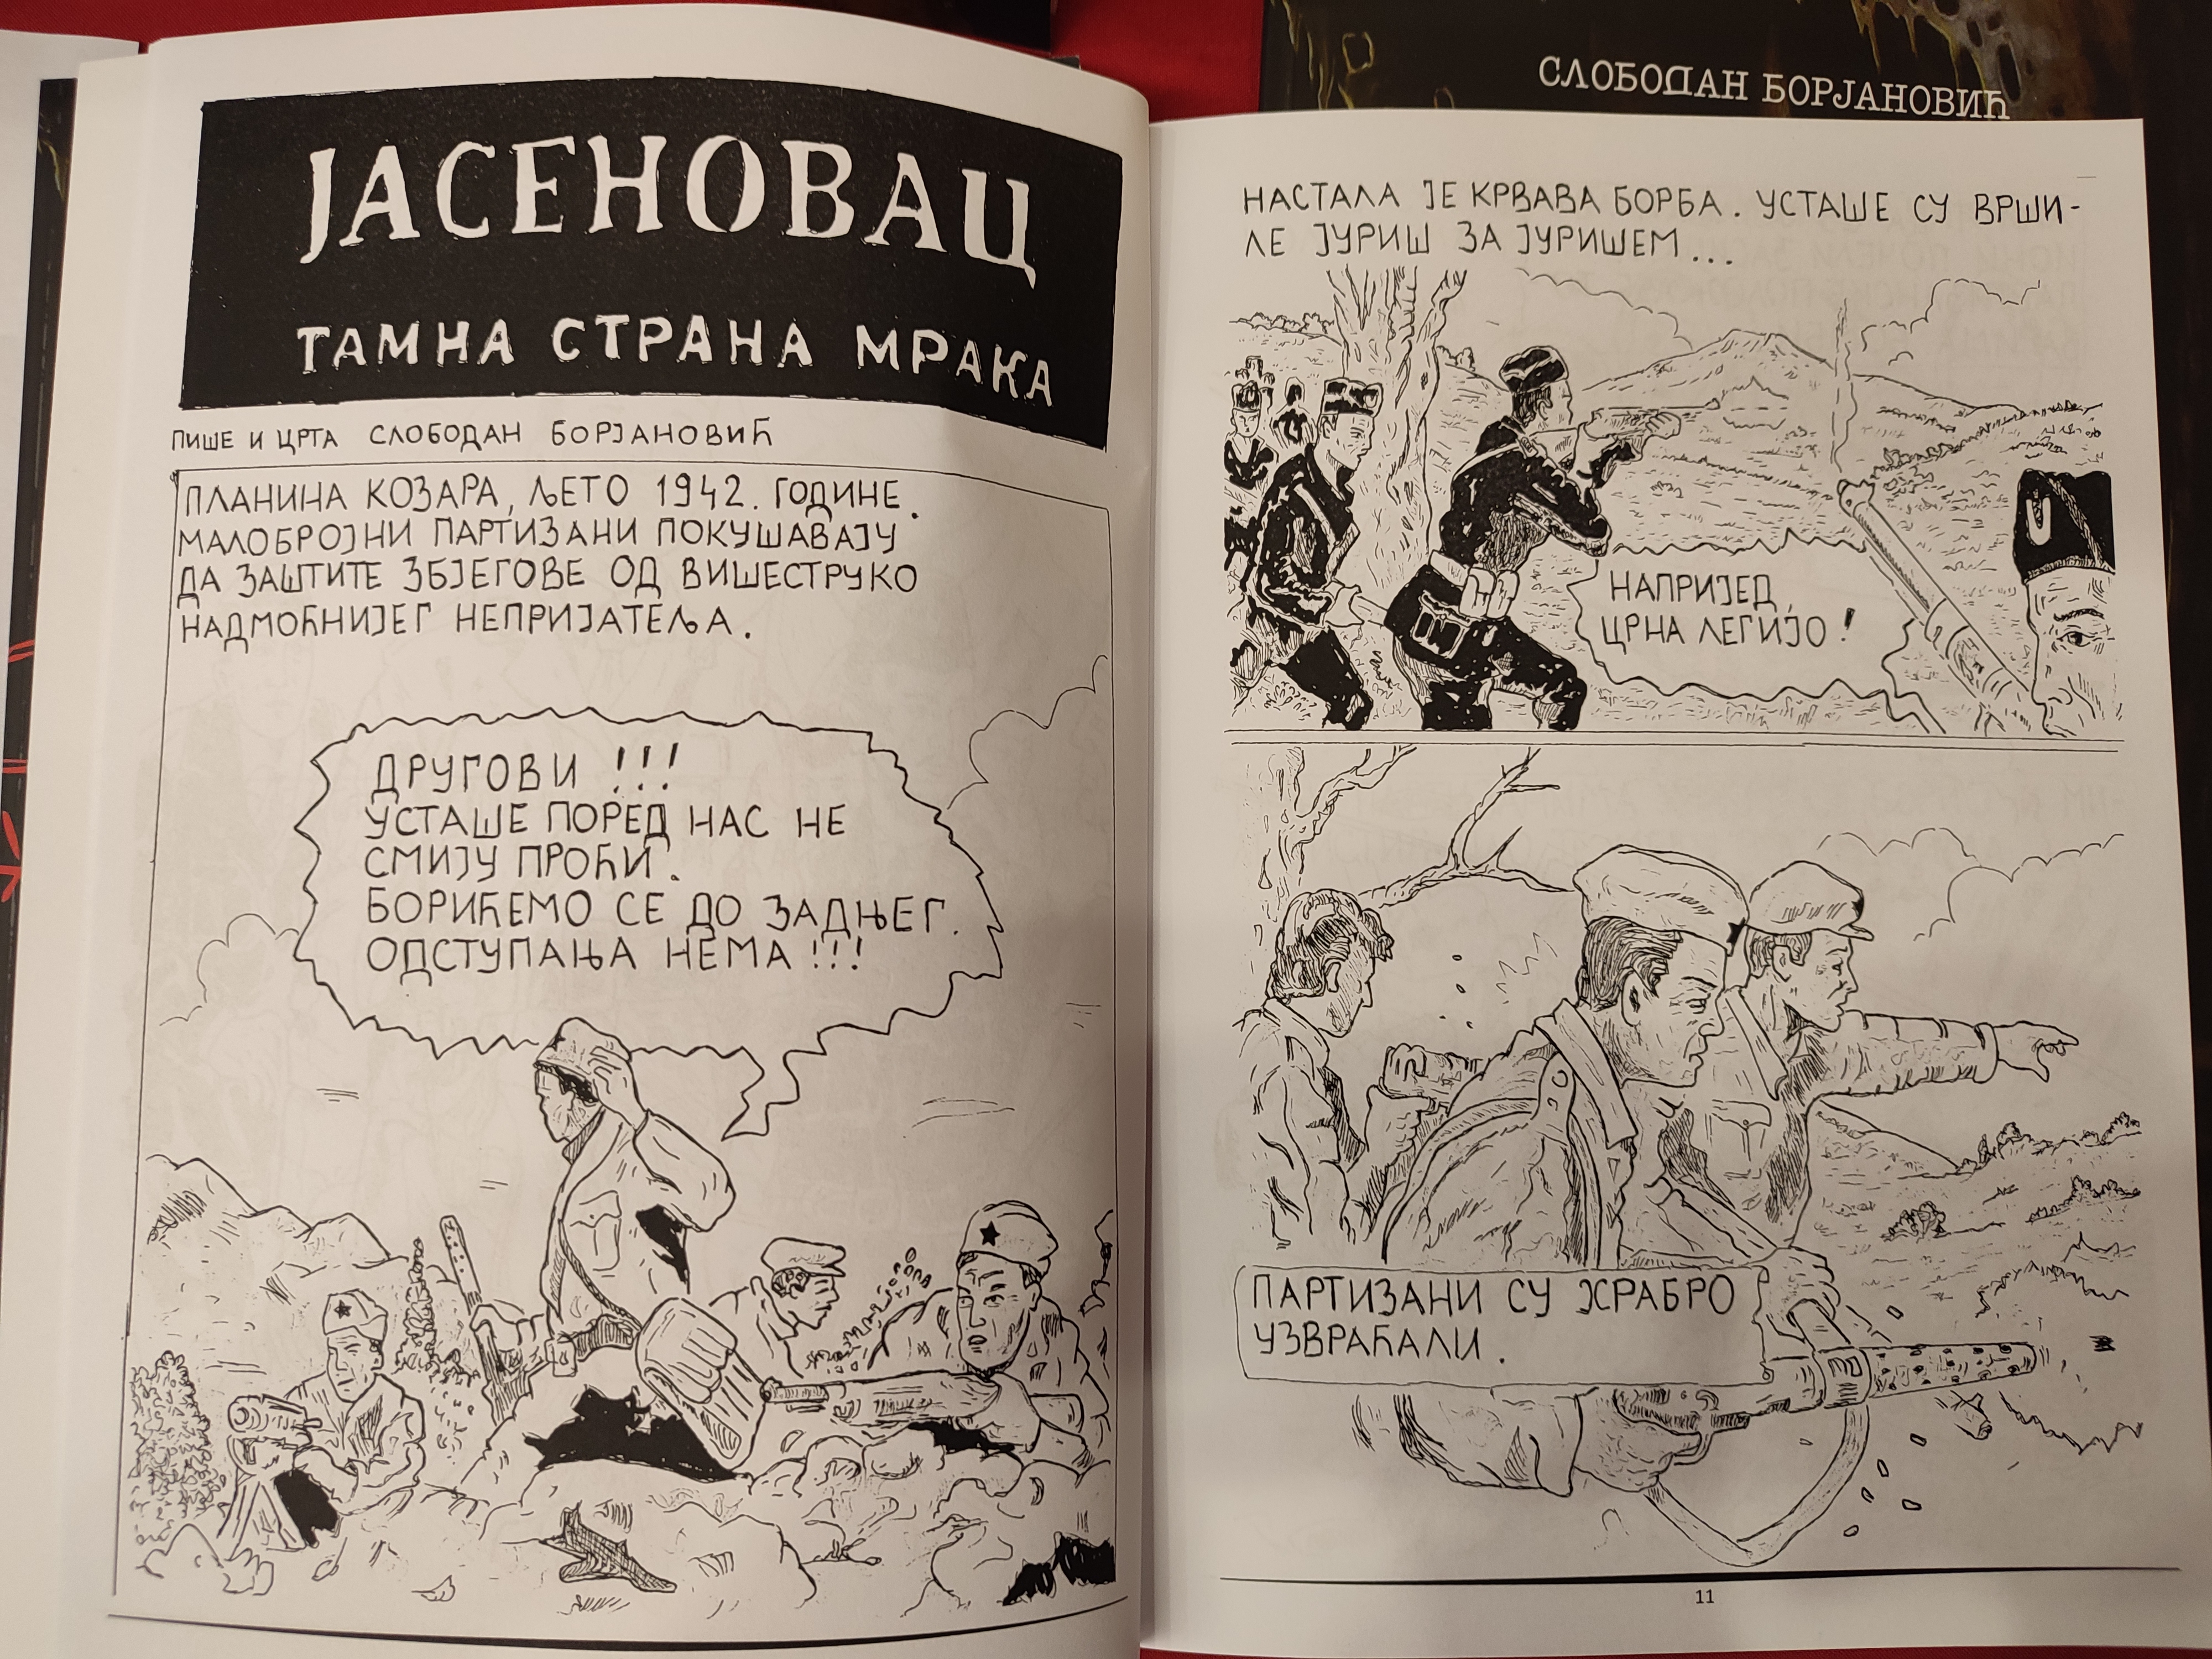 ЈАСЕНОВАЦ
ТАМНА СТРАНА МРАКА
ПИШЕ И ЦРТА СЛОБОДАН БОРЈАНОВИЋ
ПЛАНИНА КОЗАРА, ЉЕТО 1942. ГОДИНЕ.
МАЛОБРОЈНИ ПАРТИЗАНИ ПОКУШАВАЈУ
ДА ЗАШТИТЕ ЗБЈЕГОВЕ ОД ВИШЕСТРУКО
НАДМОЋНИЈЕГ НЕПРИЈАТЕЉА.
ДРУГОВИ !!!
УСТАШЕ ПОРЕД НАС НЕ
СМИЈУ ПРОЋИ.
БОРИЋЕМО СЕ ДО ЗАДЊЕГ.
ОДСТУПАЊА НЕМА !!!
СЛОБОДАН БОРЈАНОВИЋ
НАСТАЛА ЈЕ КРВАВА БОРБА. УСТАШЕ СУ ВРШИ-
ЛЕ ЈУРИШ ЗА ЈУРИШЕМ...
НАПРИЈЕД,
ЦРНА ЛЕГИЈО !
U
ПАРТИЗАНИ СУ ХРАБРО
УЗВРАЋАЛИ.
11